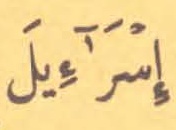 إِسْرَآءِيلَ